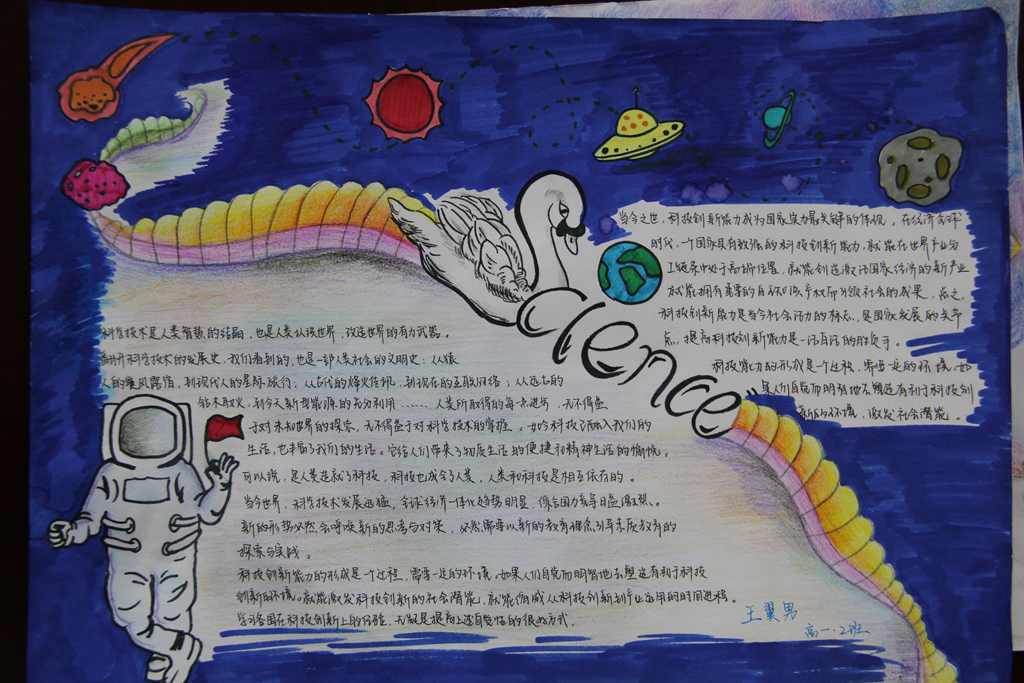 当今之世，科技创新能力成为国家实力最关键的体现。在经济全球
时代，一个国家具有较强的科技创新能力，就能在世界产业分
工链条中处于高端位置，就能创造激活国家经济的新产业
就能拥有重要的自主知识产权而引领社会的成果，总之，
科技创新能力是当今社会活力的标志，是国家发展的关节
点，提高科技创新能力是一活自活的胜负手。
科技能力的形成是一个过程，需要一定的环境，如
果人们自觉而明智地去塑造有利于科技创
新的环境，激发社会潜能。
Science
科学技术是人类智慧的结晶，也是人类认识世界，改造世界的有力武器。
翻开科学技术的发展史，我们看到的，也是一部人类社会的文明史：从猿
人的乘风露宿，到现代人的星际旅行；从古代的烽火传讯，到现在的互联网络；从远古的
钻木取火，到今天新型能源的充分利用……人类所取得的每一点进步，无不得益
于对未知世界的探索，无不得益于对科学技术的掌握。如今科技已融入我们的
生活，也丰富了我们的生活。它给人们带来了物质生活的便捷和精神生活的愉悦。
可以说，是人类造就了科技，科技也成全了人类，人类和科技是相互依存的。
当今世界，科学技术发展迅猛，全球经济一体化趋势明显，综合国力竞争日益激烈。
新的形势必然会呼唤新的思考与对策，必然需要以新的教育理念引导素质教育的
探索与实践。
科技创新能力的形成是一个过程，需要一定的环境。如果人们自觉而明智地去塑造有利于科技
创新的环境。就能激发科技创新的社会潜能，就能缩减从科技创新到产业运用的时间进程。
学习各国在科技创新上的经验，无疑是提高上述自觉性的很好方式。
王翼男
高一·2班